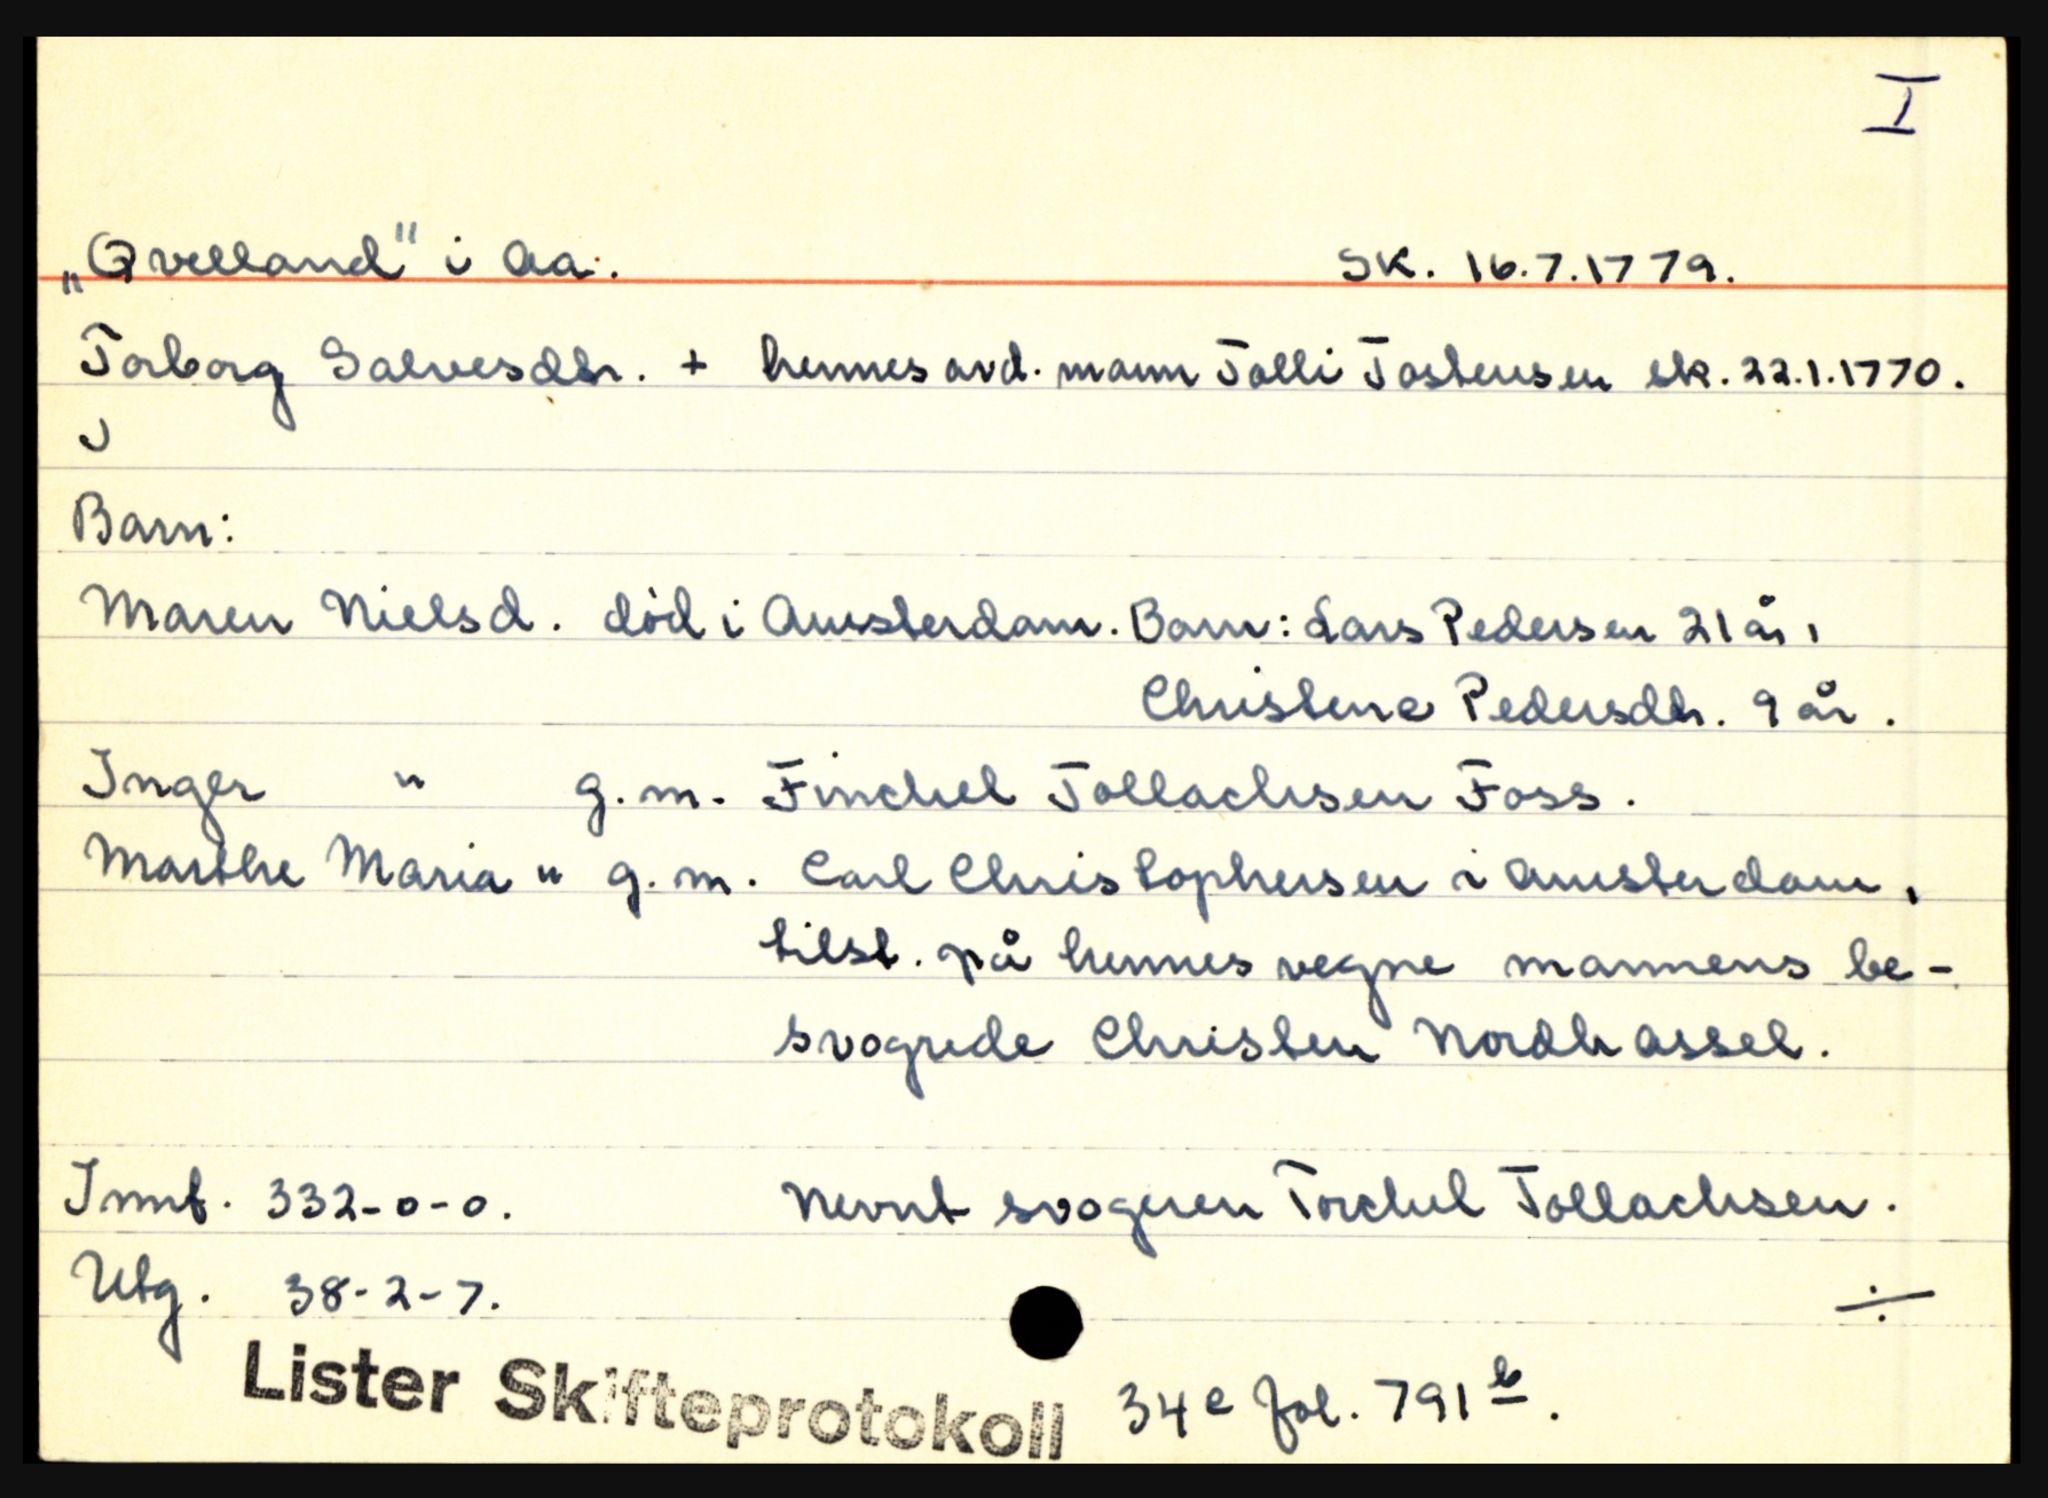 I
„Qvelland" i Aa.
SK. 16.7.1779.
Torborg Salvesdtr. + hennes avd. mann Tolli Tostensen sk. 22.1.1770.
Barn:
Maren Nielsd. död i Amsterdam. Barn: Lars Pedersen 21 år,
Christene Pedersdtr. 9 år.
Inger " g.m. Finchel Tollachsen Foss.
Marthe Maria " g.m. Carl Christophersen i Amsterdam,
tilst. på hennes vegne mannens be-
svogrede Christen Nordhassel.
Innt. 332-0-0. Nevnt svogeren Torchel Tollachsen.
Utg. 38-2-7. ÷
Lister Skifteprotokoll 34 c fol. 791 b.